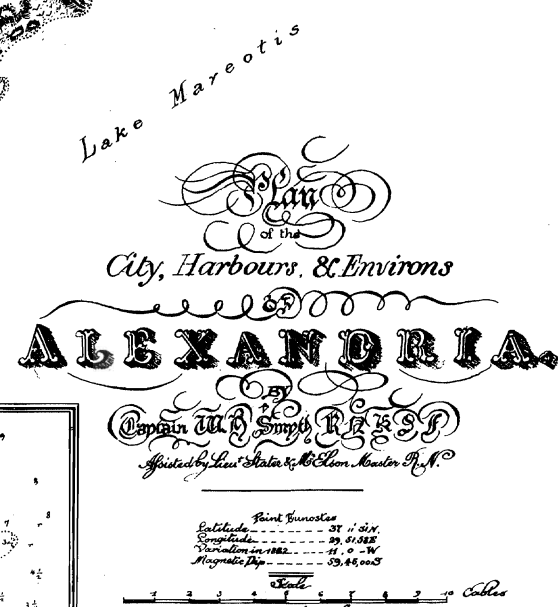 Lake Mareotis
Plan
of the
City, Harbours, & Environs
OF
ALEXANDRIA.
By
Captain W. H Smyth R N K S F
Assisted by Lieut Slater & Mr Elson Master R.N.
Point Eunostos
Latitude 31 11 31 N.
Longitude 29.51.58 E
Variation in 1822 11.0-W
Magnetic Dip
Scale
1 2 3 4 5 6 7 8 9 10 Cables
9
5
8
7
3½
4½